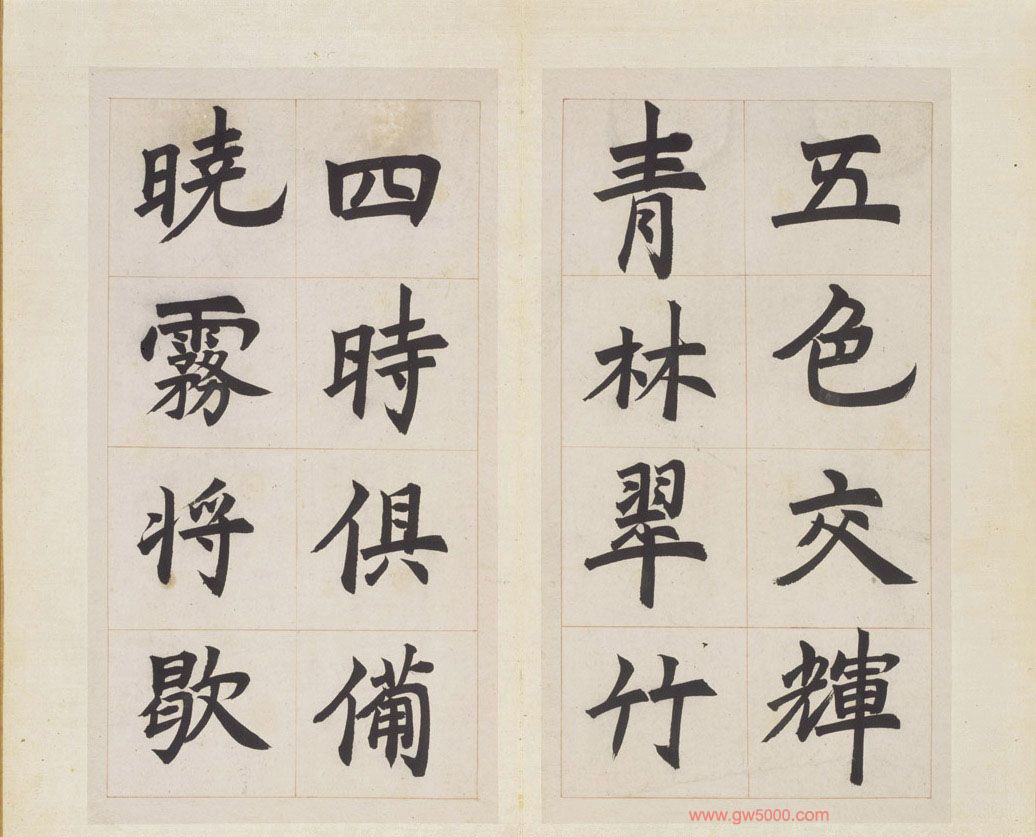 五色交輝
青林翠竹
四時俱備
曉霧将歇
www.gw5000.com